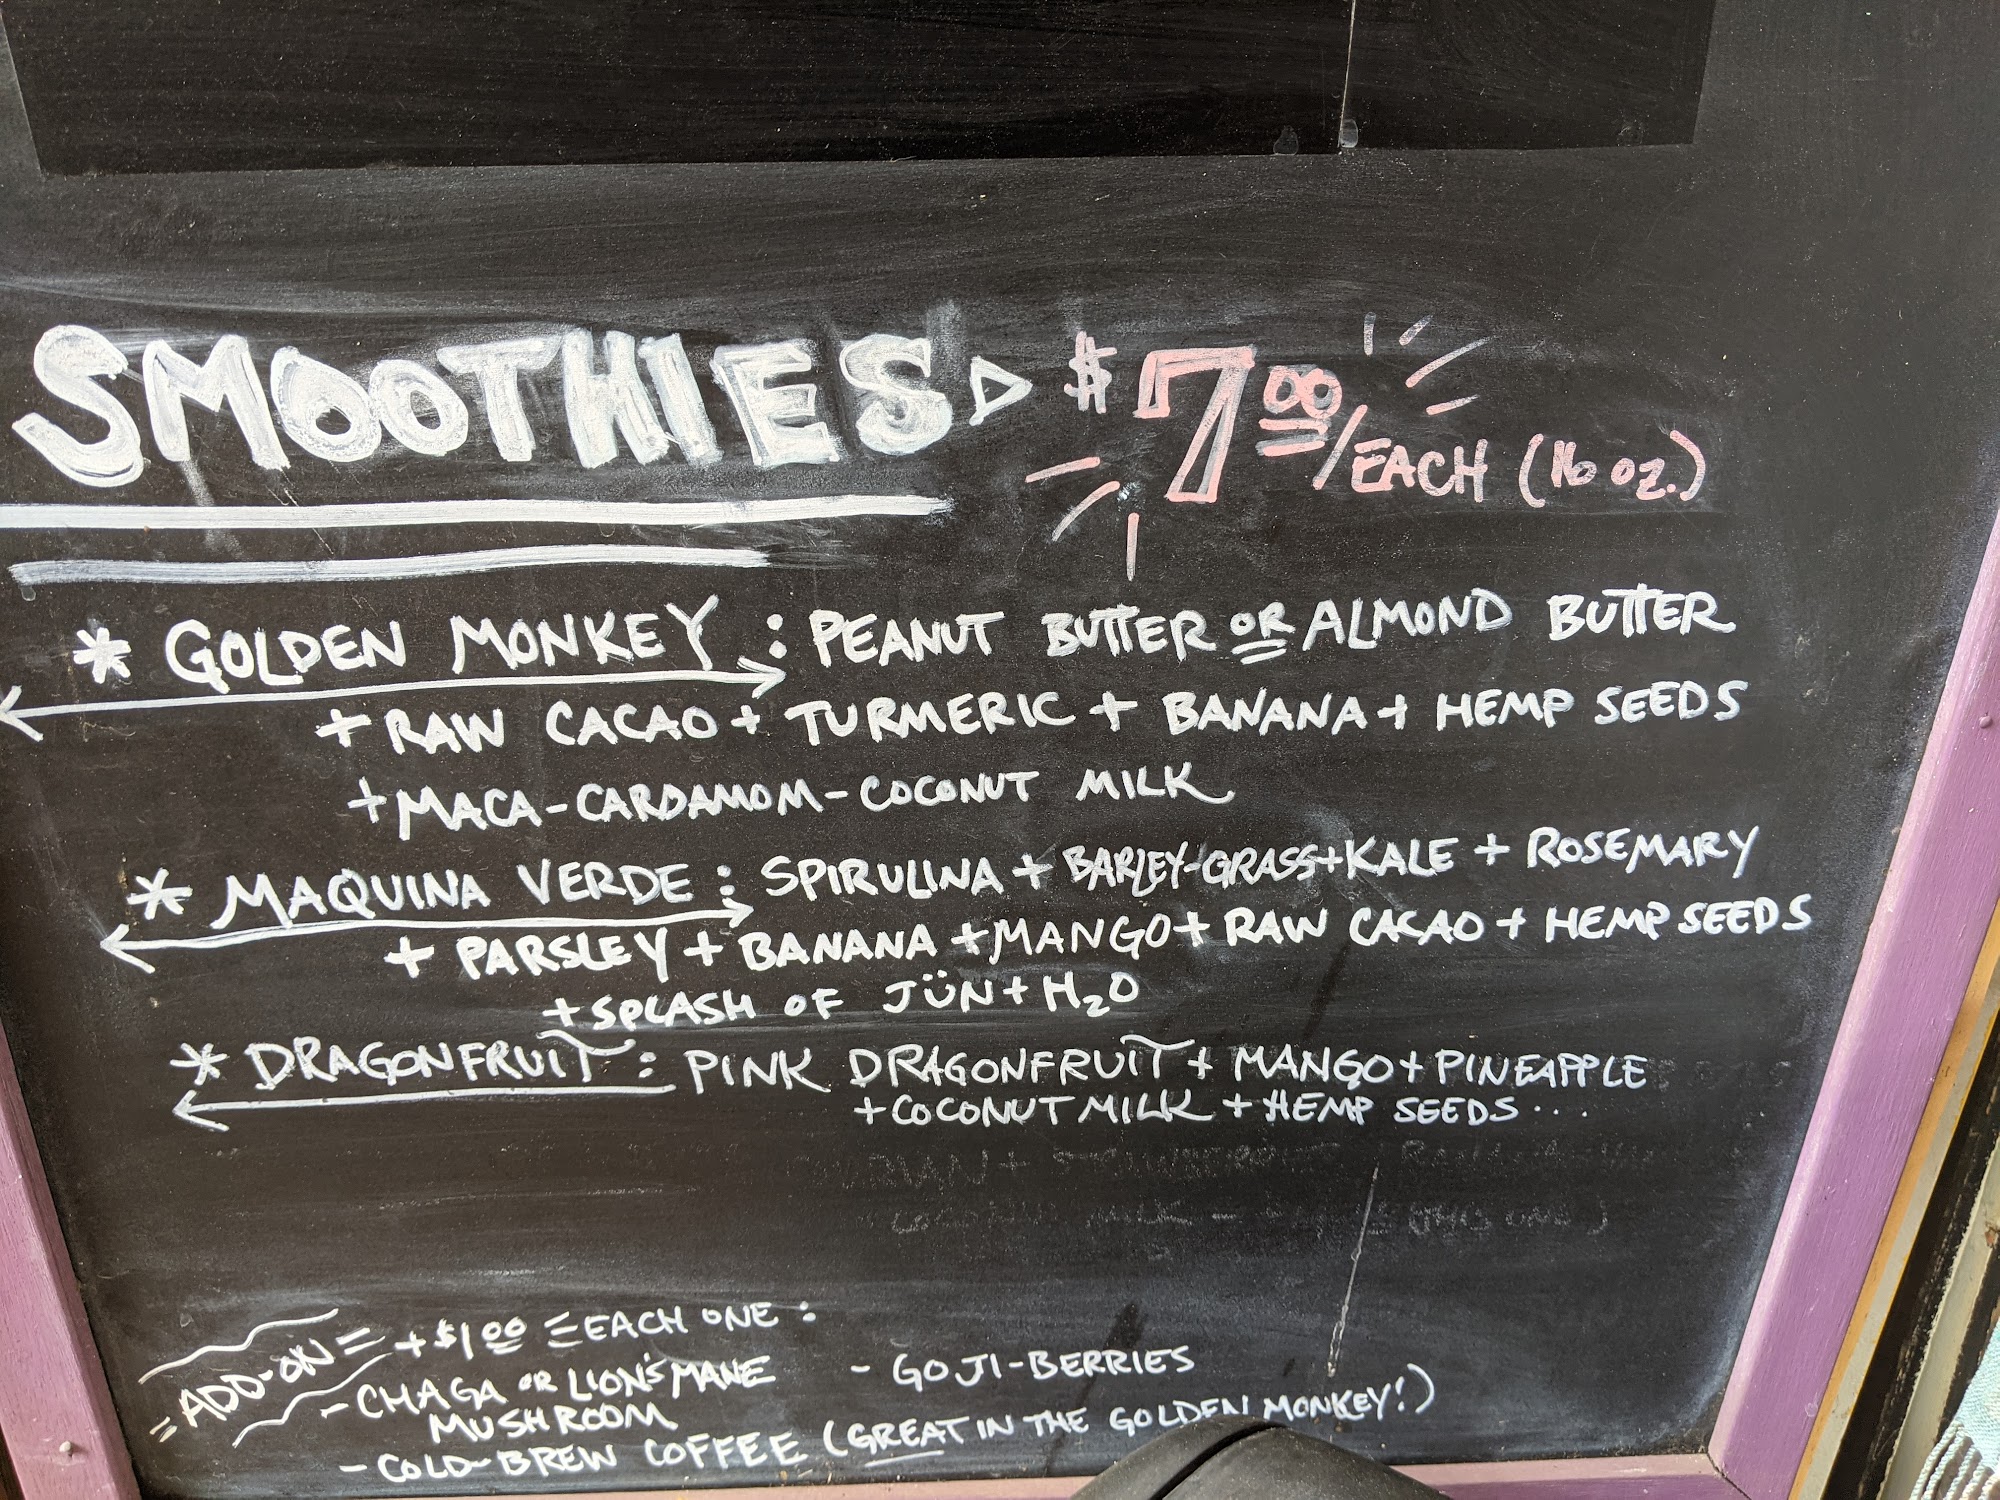 SMOOTHIES ▷ $7.00/EACH (16 OZ.)
* GOLDEN MONKEY : PEANUT BUTTER OR ALMOND BUTTER
+ RAW CACAO + TURMERIC + BANANA + HEMP SEEDS
+ MACA-CARDAMOM-COCONUT MILK
* MAQUINA VERDE : SPIRULINA + BARLEY-GRASS + KALE + ROSEMARY
+ PARSLEY + BANANA + MANGO + RAW CACAO + HEMP SEEDS
+ SPLASH OF JÜN + H2O
* DRAGONFRUIT : PINK DRAGONFRUIT + MANGO + PINEAPPLE
+ COCONUT MILK + HEMP SEEDS...
COCONUT MILK
= ADD-ON = + $1.00 = EACH ONE :
- CHAGA OR LION'S MANE - GOJI-BERRIES
MUSHROOM
- COLD-BREW COFFEE (GREAT IN THE GOLDEN MONKEY!)